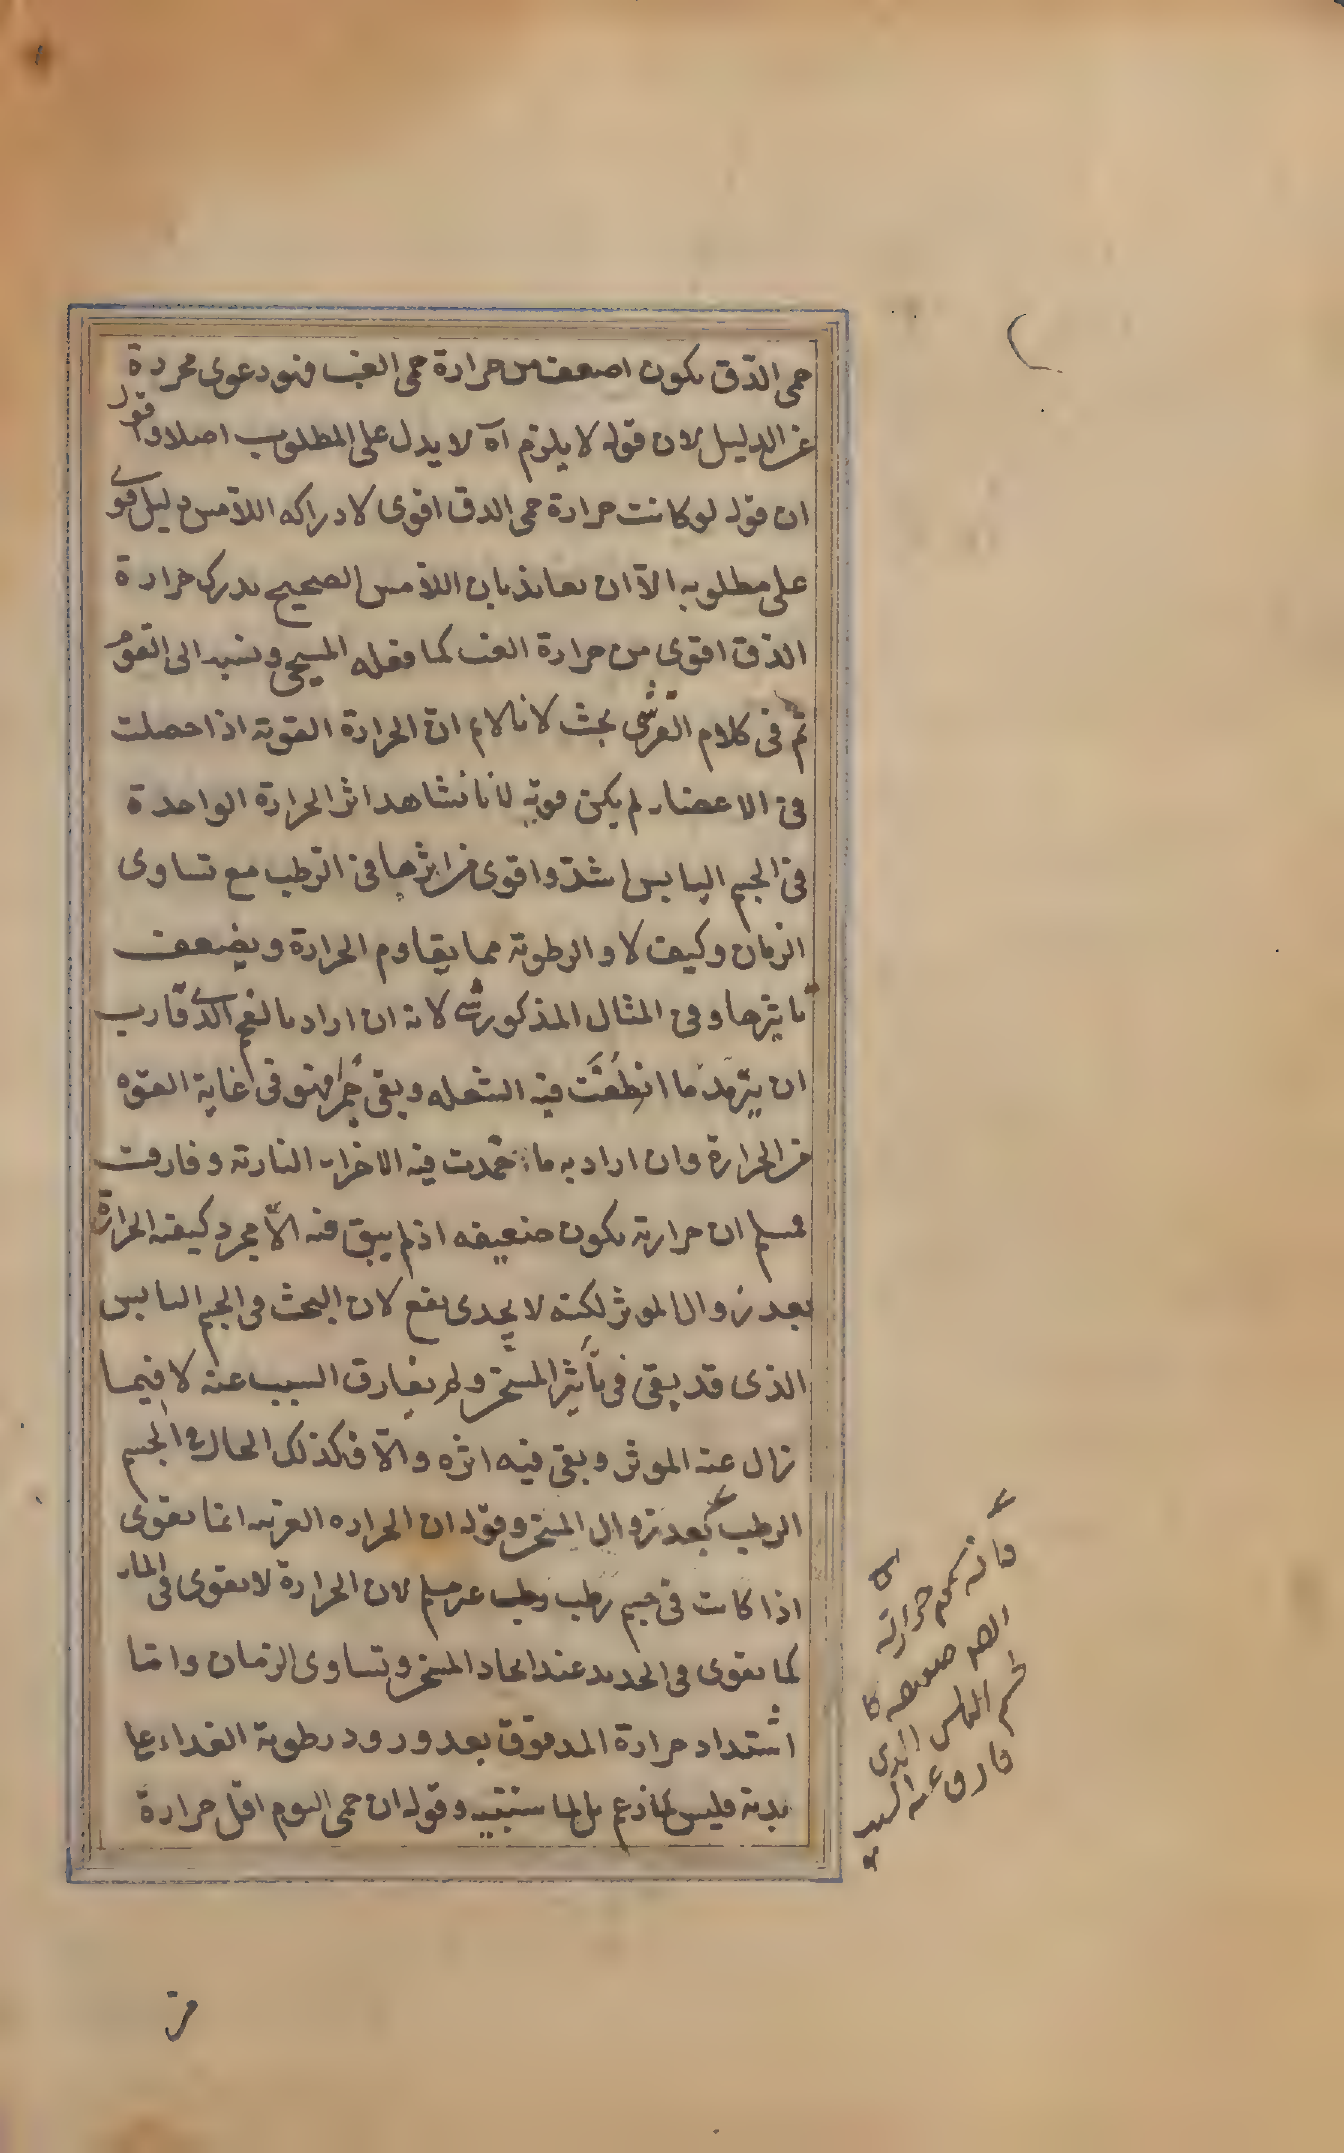 حمى الدق يكون اضعف من حرارة حمى الغب فهو دعوى مجردة
عن الدليل لان قوله لا يلزم اه لا يدل على المطلوب اصلا واقول
ان قوله لو كانت حرارة حمى الدق اقوى لادراكه اللامس دليل قوي
على مطلوبه الا ان يعاند بان اللامس الصحيح يدرك حرارة
الدق اقوى من حرارة الغب كما فعله المسيحي ونسبه الى القوم
ثم في كلام القرشي بحث لانا لانم ان الحرارة القوية اذا حصلت
في الاعضاء لم يكن قوية لانا نشاهد اثر الحرارة الواحدة
في الجسم اليابس اشد واقوى من اثرها في الرطب مع تساوى
الزمان وكيف لا والرطوبة مما يقاوم الحرارة ويضعف
تاثيرها وفي المثال المذكور شي لانه ان اراد بالفحم الذي قارب
ان يترمد ما انطفئت فيه الشعله وبقى جمرا فهو في غاية القوه
من الحرارة وان اراد به ما خمدت فيه الاجزاء النارية وفارقت
فمسلم ان حرارته يكون ضعيفه اذ لم يبق فيه الا مجرد كيفية الحرارة
بعد زوال الموثر لكنه لا يجدى نفع لان البحث في الجسم اليابس
الذى قد بقى في تأثير المسخن ولم يفارق السبب عنه لا فيما
زال عنه الموثر وبقى فيه اثره والا فكذلك الحال في الجسم
الرطب بعد زوال المسخن وقوله ان الحراره الغريبه انما يقوى
اذا كانت في جسم رطب غير مسلم لان الحرارة لا يقوى في الماء
كما يقوى في الحديد عند اتحاد المسخن وتساوى الزمان واما
اشتداد حرارة المدقوق بعد ورود رطوبة الغداء على
بدنه فليس لما زعم بل لما سنبينه وقوله ان حمى اليوم اقل حرارة
فانه حرارته
فارق عنه السبب
من